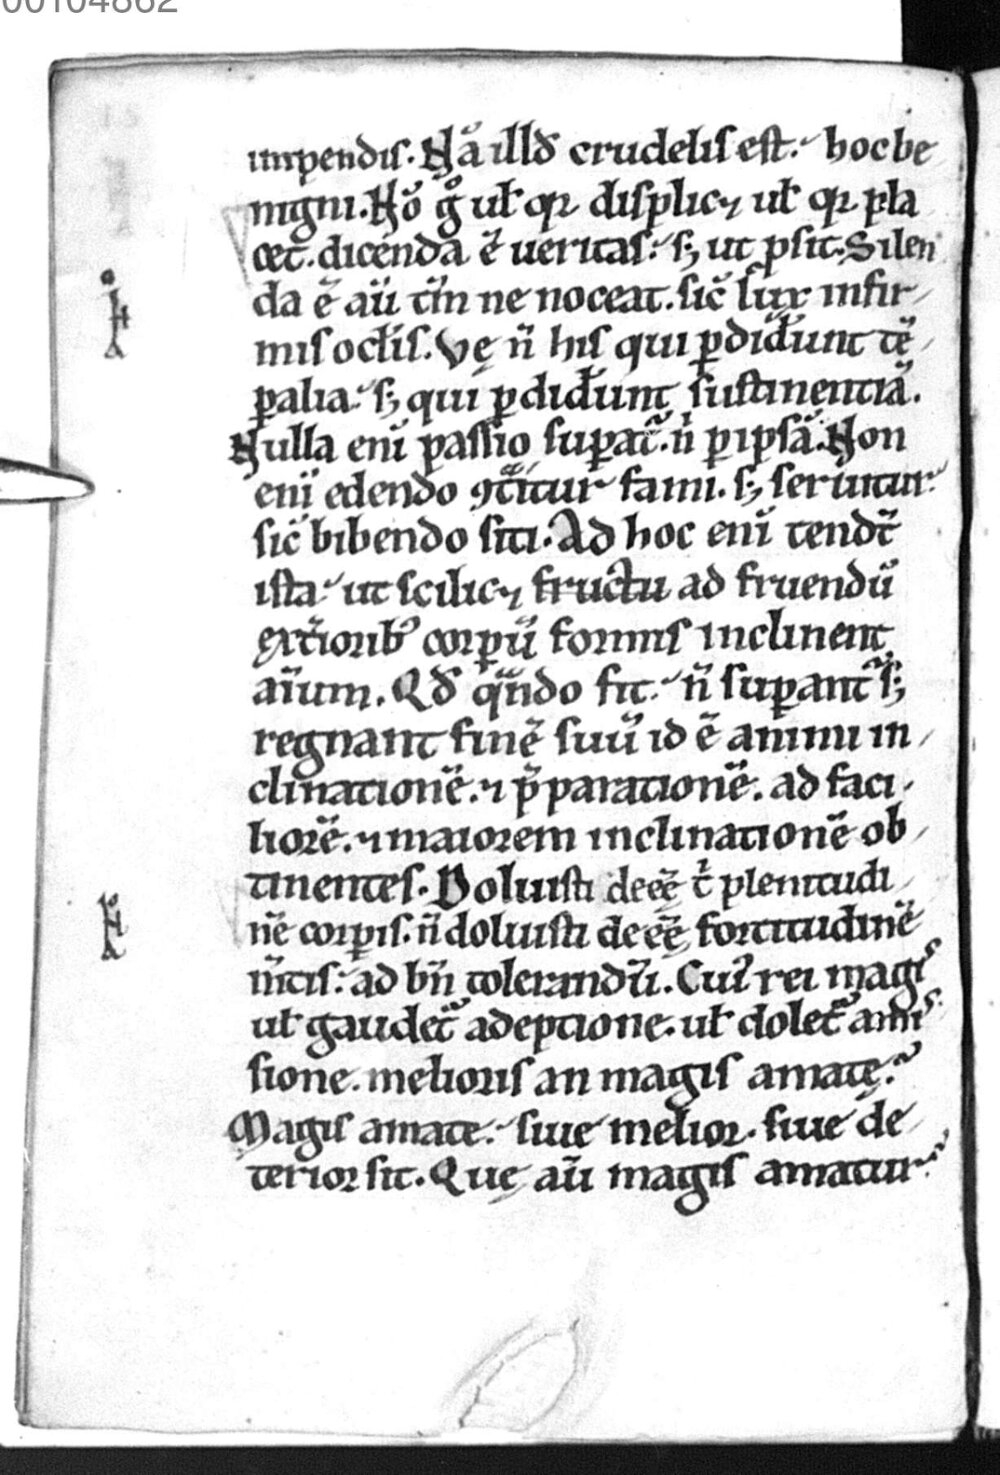 00104862
impendis. Nā illď crudelis est. hoc be
nigni. Nō g̊ uł qr displic⁊ uł qr pla
cet. dicenda ē ueritas. s; ut ꝓsit. Silen
da ē aū tm̄ ne noceat. sic̄ lux infir
mis oclīs. Vę n̄ his qui ꝑdideŕunt tē
ꝑalia. s; qui ꝑdideŕunt sustinentiā.
Nulla enī passio suꝑat᷑. n̄ ꝑ ipsā. Non
enī edendo ꝯc̄itur fami. s; seruitur.
sic̄ bibendo siti. Ad hoc enī tendt̄
ista. ut scilic⁊ fructu ad fruendū
ext̄iorib; corꝑū formis inclinent
aīum. Qď qn̄do fit. n̄ suꝑant᷑ s;
regnant finē suū id ē animi in
clinationē. ⁊ p̄parationē. ad faci
liorē. ⁊ maiorem inclinationē ob
tinentes. Doluisti deeē t̄ plenitudi
nē corꝑis. n̄ doluisti deeē fortitudinē
m̄tis. ad bn̄ tolerandū. Cuī rei magis
uł gaudet᷑ adeptione. uł dolet᷑ amis
sione. melioris an magis amatę.
Magis amate. siue melior. siue de
terior sit. Quę aū magis amatur.